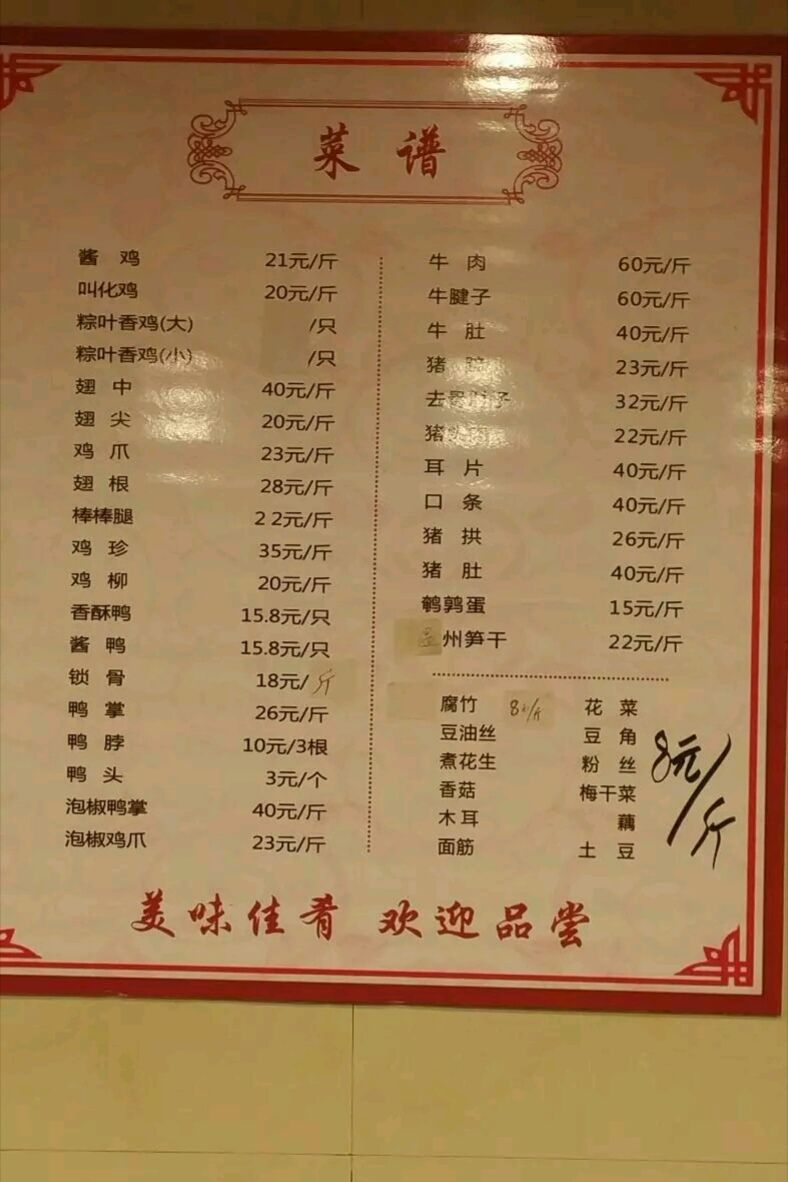 菜谱
酱鸡 21元/斤
叫化鸡 20元/斤
粽叶香鸡(大) /只
粽叶香鸡(小) /只
翅中 40元/斤
翅尖 20元/斤
鸡爪 23元/斤
翅根 28元/斤
棒棒腿 22元/斤
鸡珍 35元/斤
鸡柳 20元/斤
香酥鸭 15.8元/只
酱鸭 15.8元/只
锁骨 18元/斤
鸭掌 26元/斤
鸭脖 10元/3根
鸭头 3元/个
泡椒鸭掌 40元/斤
泡椒鸡爪 23元/斤
牛肉 60元/斤
牛腱子 60元/斤
牛肚 40元/斤
猪 23元/斤
去 32元/斤
猪 22元/斤
耳片 40元/斤
口条 40元/斤
猪拱 26元/斤
猪肚 40元/斤
鹌鹑蛋 15元/斤
州笋干 22元/斤
腐竹 8元/斤
豆油丝
煮花生
香菇
木耳
面筋
花菜
豆角
粉丝
梅干菜
藕
土豆
8元/斤
美味佳肴 欢迎品尝